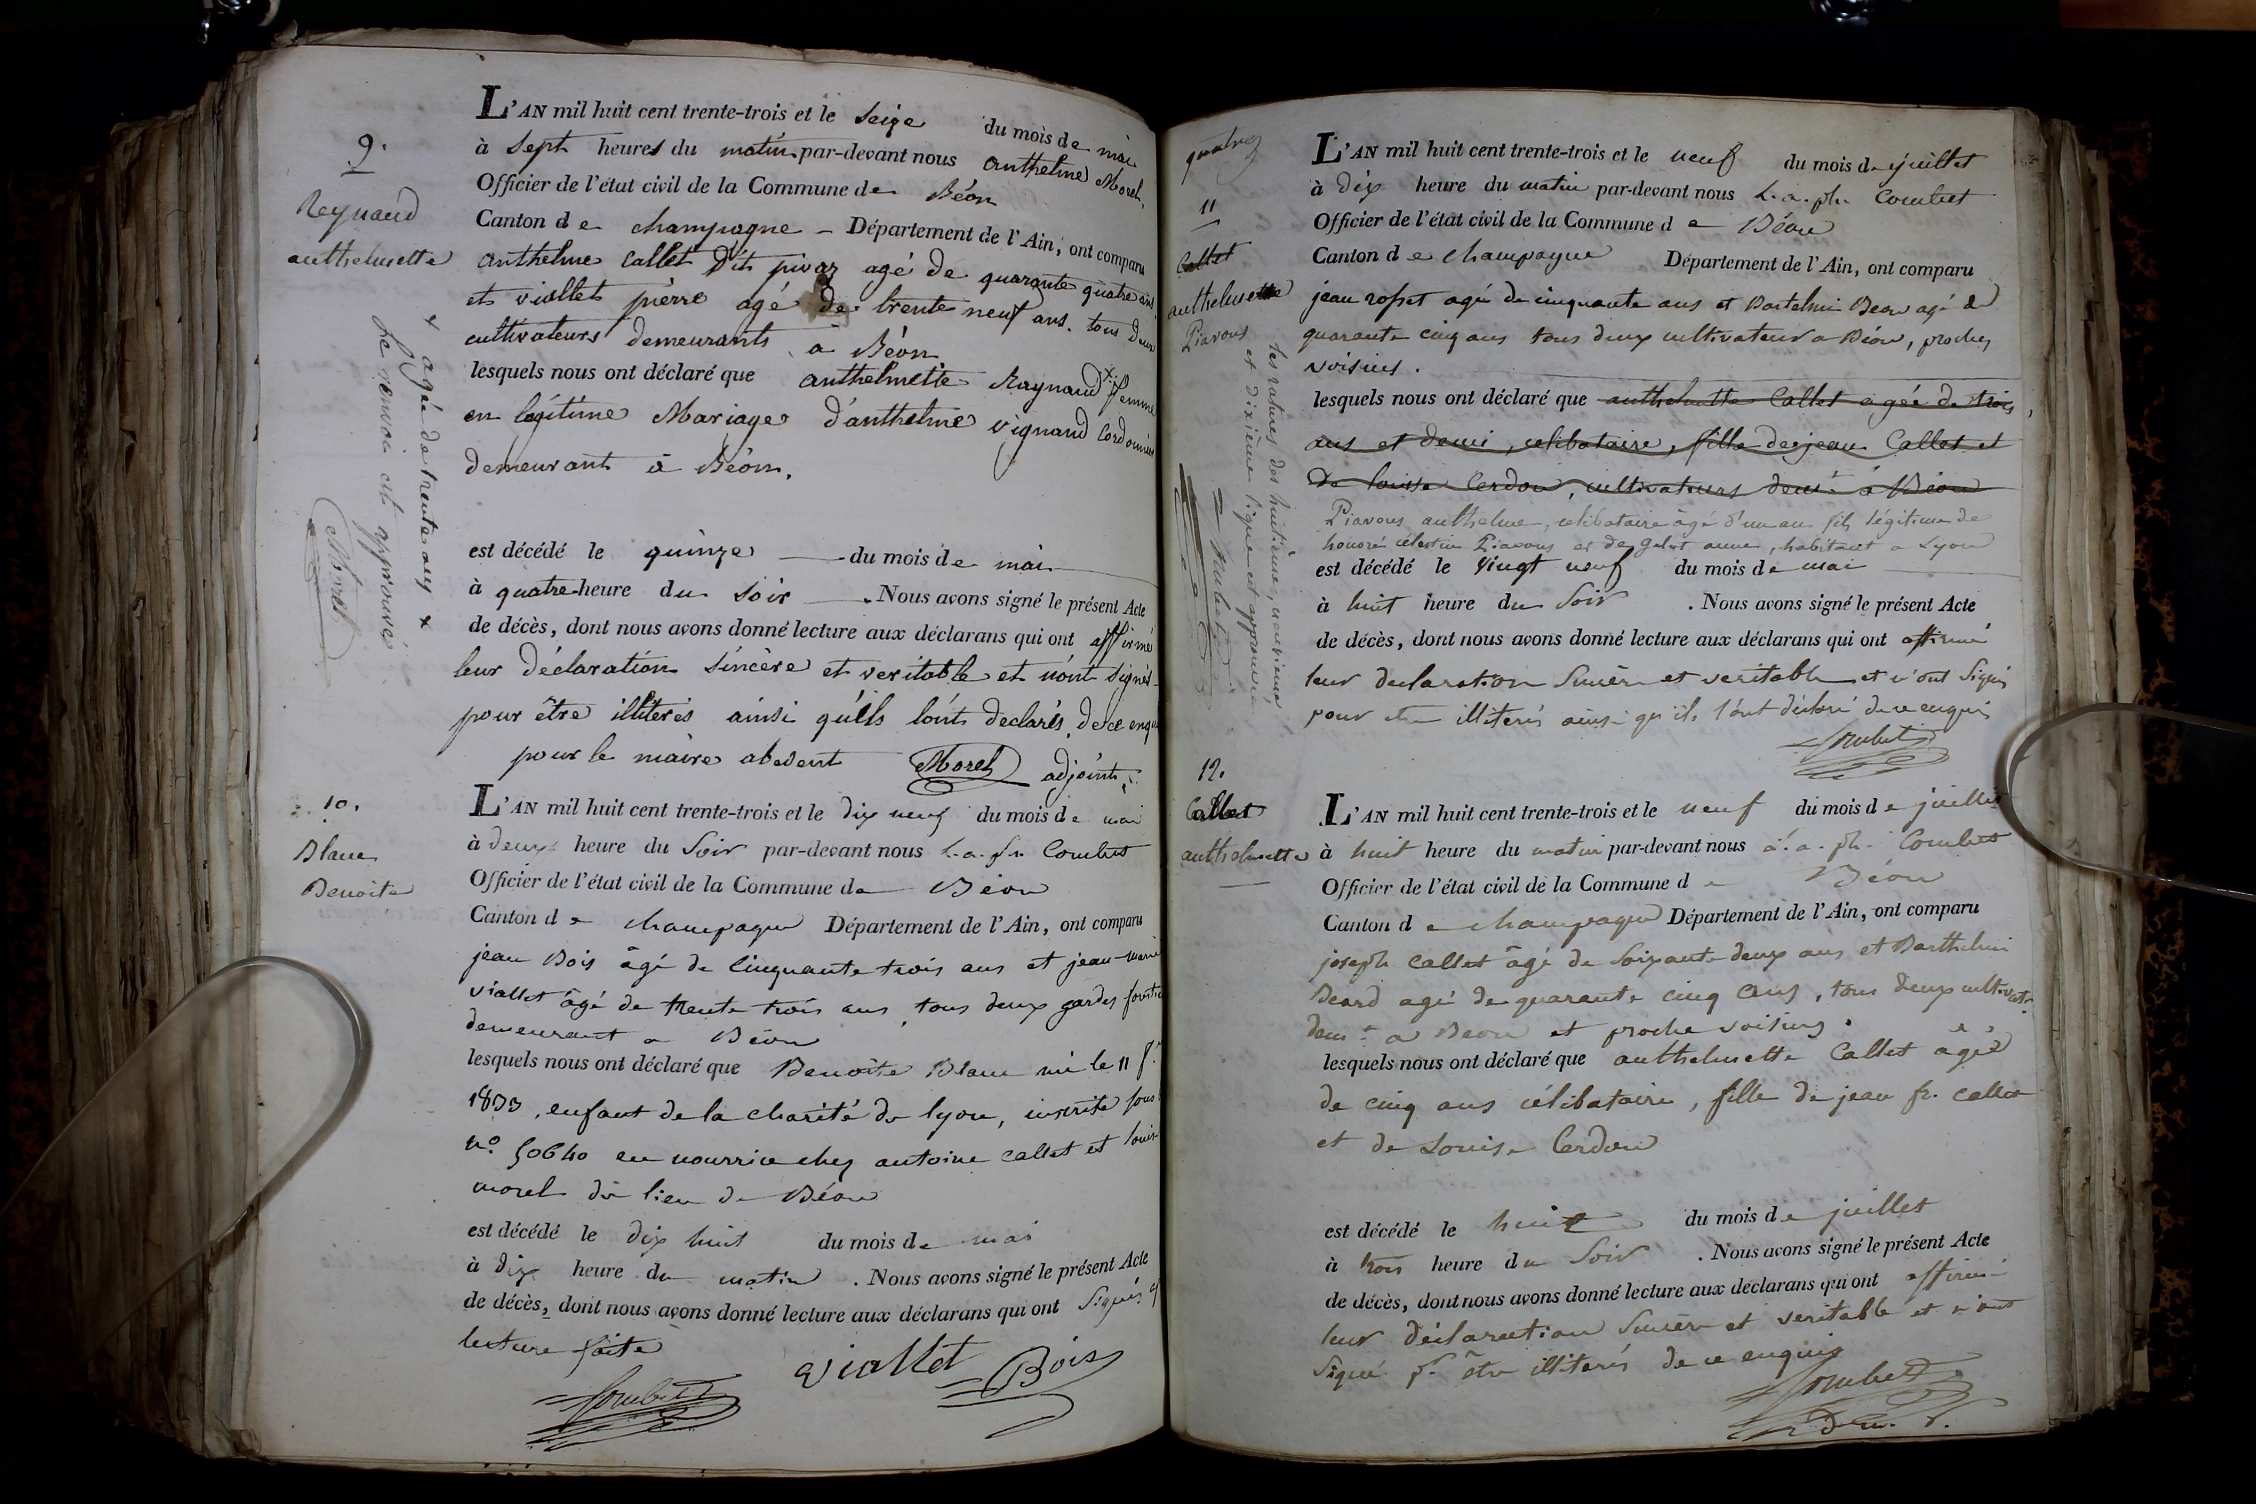 9.
Reynaud
anthelmette
L'AN mil huit cent trente-trois et le seize du mois de mai
à sept heures du matin par-devant nous anthelme Morel,
Officier de l'état civil de la Commune de Béon
Canton de champagne Département de l'Ain, ont comparu
anthelme Callet dit pivaz agé de quarante quatre ans
et viallet pierre agé de trente neuf ans. tous deux
cultivateurs demeurants à Béon
lesquels nous ont déclaré que anthelmette Raynaud x femme
en légitime Mariage d'anthelme vignand Cordonnier
demeurant à Béon.
x agée de trente ans x
Le renvoi cit approuvé
Morel
est décédé le quinze du mois de mai
à quatre heure du soir . Nous avons signé le présent Acte
de décès, dont nous avons donné lecture aux déclarans qui ont affirmé
leur déclaration sincère et veritable et n'ont signés
pour être illiterés ainsi qu'ils l'ont declarés, de ce enquis
pour le maire absent Morel adjoint
10.
Blanc
Benoite
L'AN mil huit cent trente-trois et le dix neuf du mois de mai
à deux heure du soir par-devant nous L. a. ph. Combet
Officier de l'état civil de la Commune de Béon
Canton de champagne Département de l'Ain, ont comparu
jean Bois âgé de Cinquante trois ans et jean-marie
viallet âgé de trente trois ans, tous deux gardes
demeurant a Béon
lesquels nous ont déclaré que Benoîte Blanc né le 11
1833, enfant de la charité de lyon, inscrite sous
n° 50640 en nourrice chez antoine callet et louise
morel du lieu de Béon
est décédé le dix huit du mois de mai
à dix heure du matin . Nous avons signé le présent Acte
de décès, dont nous avons donné lecture aux déclarans qui ont signés
lecture faite
viallet Bois
Combet
11
Callet
anthelmette
Piavoux
L'AN mil huit cent trente-trois et le neuf du mois de juillet
à dix heure du matin par-devant nous L. a. ph. Combet
Officier de l'état civil de la Commune de Béon
Canton de champagne Département de l'Ain, ont comparu
jean rosset agé de cinquante ans et Bartelmi Beard agé de
quarante cinq ans tous deux cultivateur a Béon, proches
voisins.
lesquels nous ont déclaré que anthelmette Callet agée de trois
ans et demi, célibataire, fille de jean Callet et
de louise Cerdon, cultivateurs demt à Béon
Piavoux anthelme, célibataire âgé d'un an fils légitime de
honoré célestin Piavoux et de galet anne, habitant a Lyon
les ratures des huitième, neuvième,
et dixième lignes est approuvé
Combet
est décédé le vingt neuf du mois de mai
à huit heure du soir . Nous avons signé le présent Acte
de décès, dont nous avons donné lecture aux déclarans qui ont affirmé
leur declaration sincère et veritable et n'ont signé
pour etre illiterés ainsi qu'ils l'ont déclaré de ce enquis
Combet
12.
Callet
anthelmette
L'AN mil huit cent trente-trois et le neuf du mois de juillet
à huit heure du matin par-devant nous L. a. ph. Combet
Officier de l'état civil de la Commune de Béon
Canton de champagne Département de l'Ain, ont comparu
joseph callet âgé de soixante deux ans et Barthelmi
Beard agé de quarante cinq ans, tous deux cultivatr
demt a Béon et proche voisins.
lesquels nous ont déclaré que anthelmette Callet agée
de cinq ans célibataire, fille de jean fr. callet
et de Louise Cerdon
est décédé le huit du mois de juillet
à trois heure du soir . Nous avons signé le présent Acte
de décès, dont nous avons donné lecture aux déclarans qui ont affirmé
leur déclaration sincère et veritable et n'ont
signé pr être illiterés de ce enquis
Combet